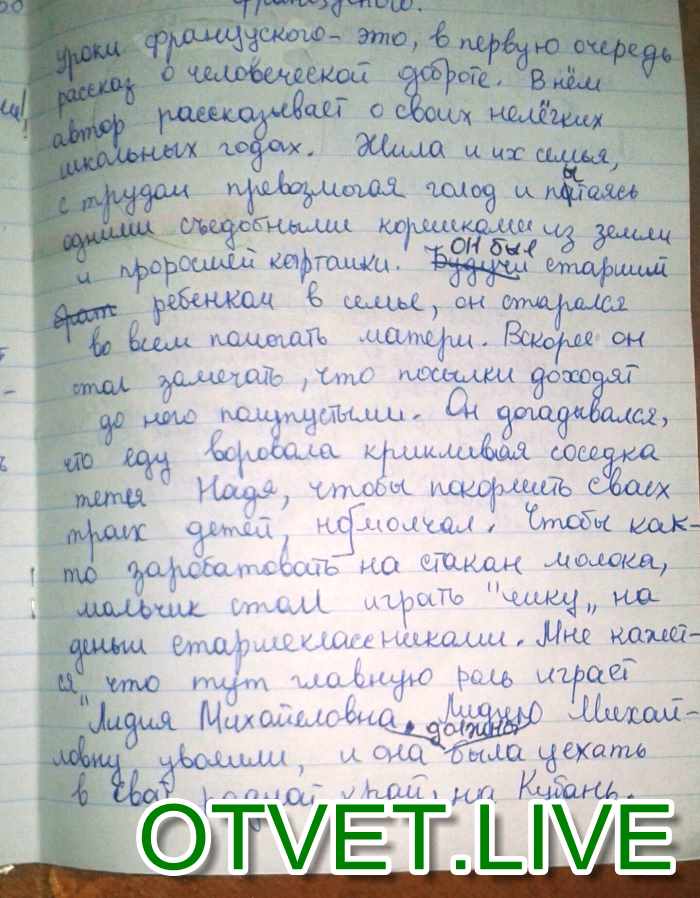 французского.
уроки французского - это, в первую очередь
рассказ о человеческой доброте. В нём
автор рассказывает о своих нелёгких
школьных годах. Жила и их семья,
с трудом превозмогая голод и пытаясь
одними съедобными корешками из земли
и проросшей картошки. Будучи он был старший
брат ребенком в семье, он старался
во всем помогать матери. Вскорее он
стал замечать, что посылки доходят
до него полупустыми. Он догадывался,
что еду воровала крикливая соседка
тетя Надя, чтобы покормить своих
троих детей, но молчал. Чтобы как-
то заробатовать на стакан молока,
мальчик стал играть "чику„ на
деньги старшеклассниками. Мне кажет-
ся что тут главную роль играет
"Лидия Михайловна. Лидию Михай-
ловну уволили, и она должны была уехать
в свой родной край, на Кубань.
OTVET.LIVE